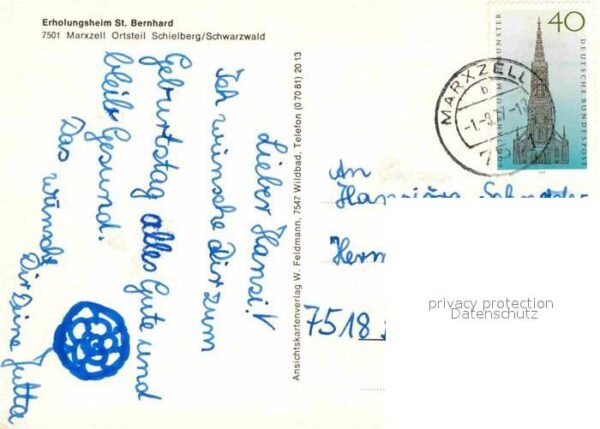 Erholungsheim St. Bernhard
7501 Marxzell Ortsteil Schielberg/Schwarzwald
Lieber Hansi!
Ich wünsche Dir zum
Geburtstag alles Gute und
bleib Gesund.
Das wünscht
Dir Deine Jutta
Ansichtskartenverlag W. Feldmann, 7547 Wildbad, Telefon (07081) 2013
40
DEUTSCHE BUNDESPOST
MARXZELL
b
An
7518
privacy protection
Datenschutz